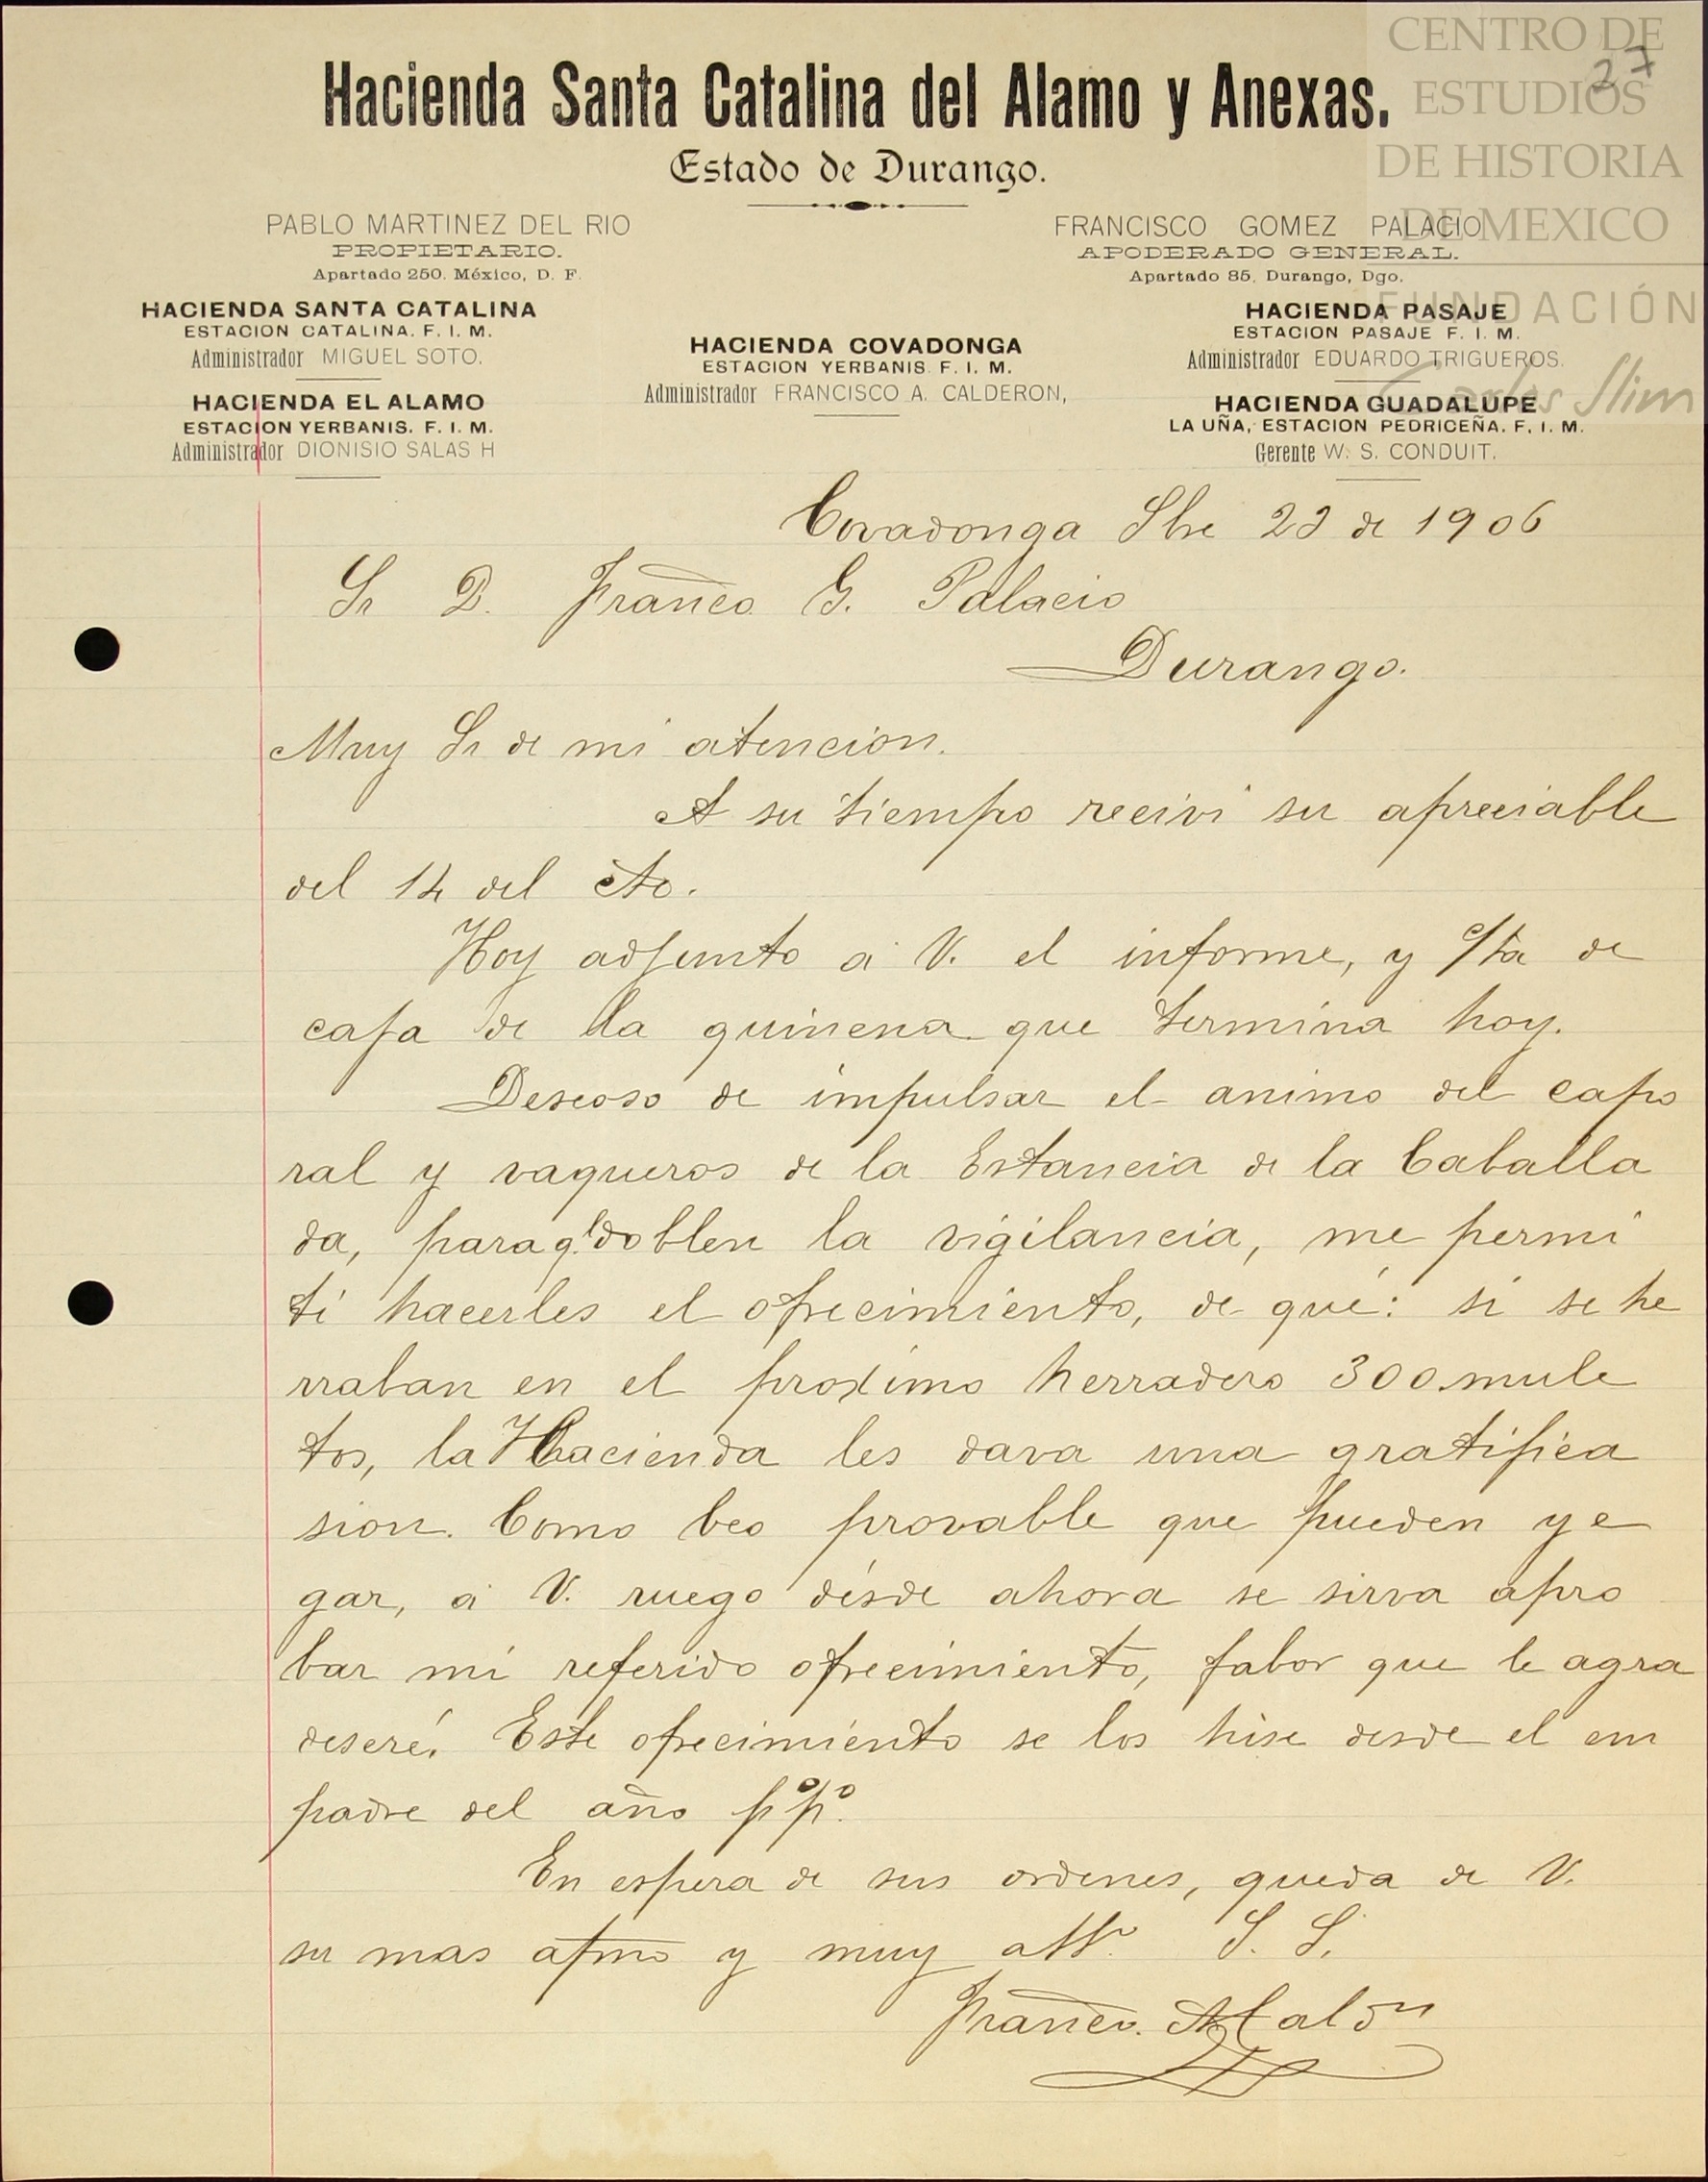 CENTRO DE
ESTUDIOS
DE HISTORIA
DE MEXICO
FUNDACIÓN
Carlos Slim
27
Hacienda Santa Catalina del Alamo y Anexas.
Estado de Durango.
PABLO MARTINEZ DEL RIO
PROPIETARIO.
Apartado 250. México, D. F.
FRANCISCO GOMEZ PALACIO
APODERADO GENERAL.
Apartado 85, Durango, Dgo.
HACIENDA SANTA CATALINA
ESTACION CATALINA. F. I. M.
Administrador MIGUEL SOTO.
HACIENDA EL ALAMO
ESTACION YERBANIS. F. I. M.
Administrador DIONISIO SALAS H
HACIENDA COVADONGA
ESTACION YERBANIS F. I. M.
Administrador FRANCISCO A. CALDERON,
HACIENDA PASAJE
ESTACION PASAJE F. I. M.
Administrador EDUARDO TRIGUEROS.
HACIENDA GUADALUPE
LA UÑA, ESTACION PEDRICEÑA. F. I. M.
Gerente W. S. CONDUIT.
Covadonga Sbre 23 de 1906
Sr D. Franco G. Palacio
Durango.
Muy Sr de mi atencion.
A su tiempo recivi su apreciable
del 14 del cte.
Hoy adjunto á V. el informe, y c/ta de
caja de la quincena que termina hoy.
Deseoso de impulsar el animo del capo
ral y vaqueros de la Estancia de la Caballa
da, para q. doblen la vigilancia, me permi
ti hacerles el ofrecimiento, de que: si se he
rraban en el proximo herradero 300 mule
tos, la Hacienda les dava una gratifica
sion. Como beo provable que pueden ye
gar, á V. ruego desde ahora se sirva apro
bar mi referido ofrecimiento, fabor que le agra
deseré. Este ofrecimiento se los hise desde el em
padre del año ppº.
En espera de sus ordenes, queda de V.
su mas afmo y muy atto. S. S.
Franco. A Caldn